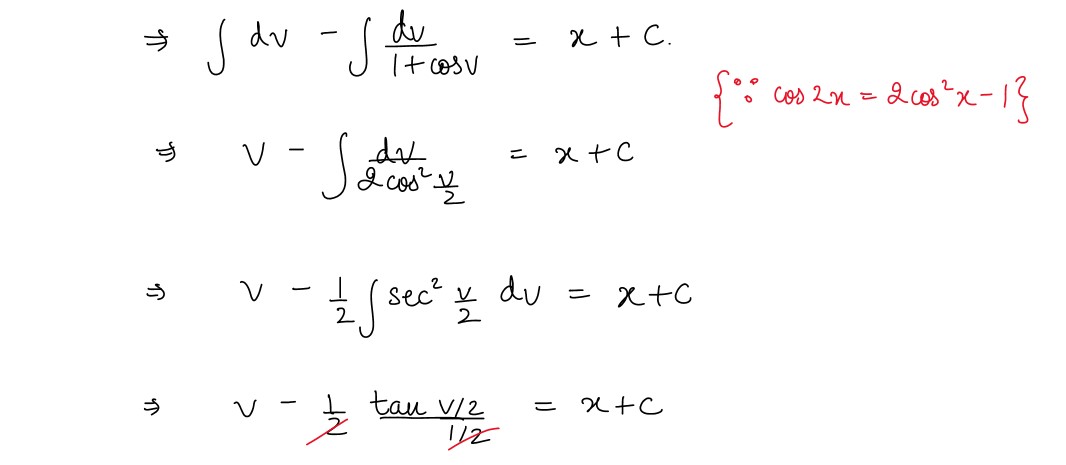 ⇒ ∫ dv - ∫ dv/(1+cosv) = x + c.
{∵ cos 2x = 2cos²x - 1}
⇒ v - ∫ dv/(2cos² v/2) = x + c
⇒ v - 1/2 ∫ sec² v/2 dv = x + c
⇒ v - 1/2 (tan v/2)/(1/2) = x + c